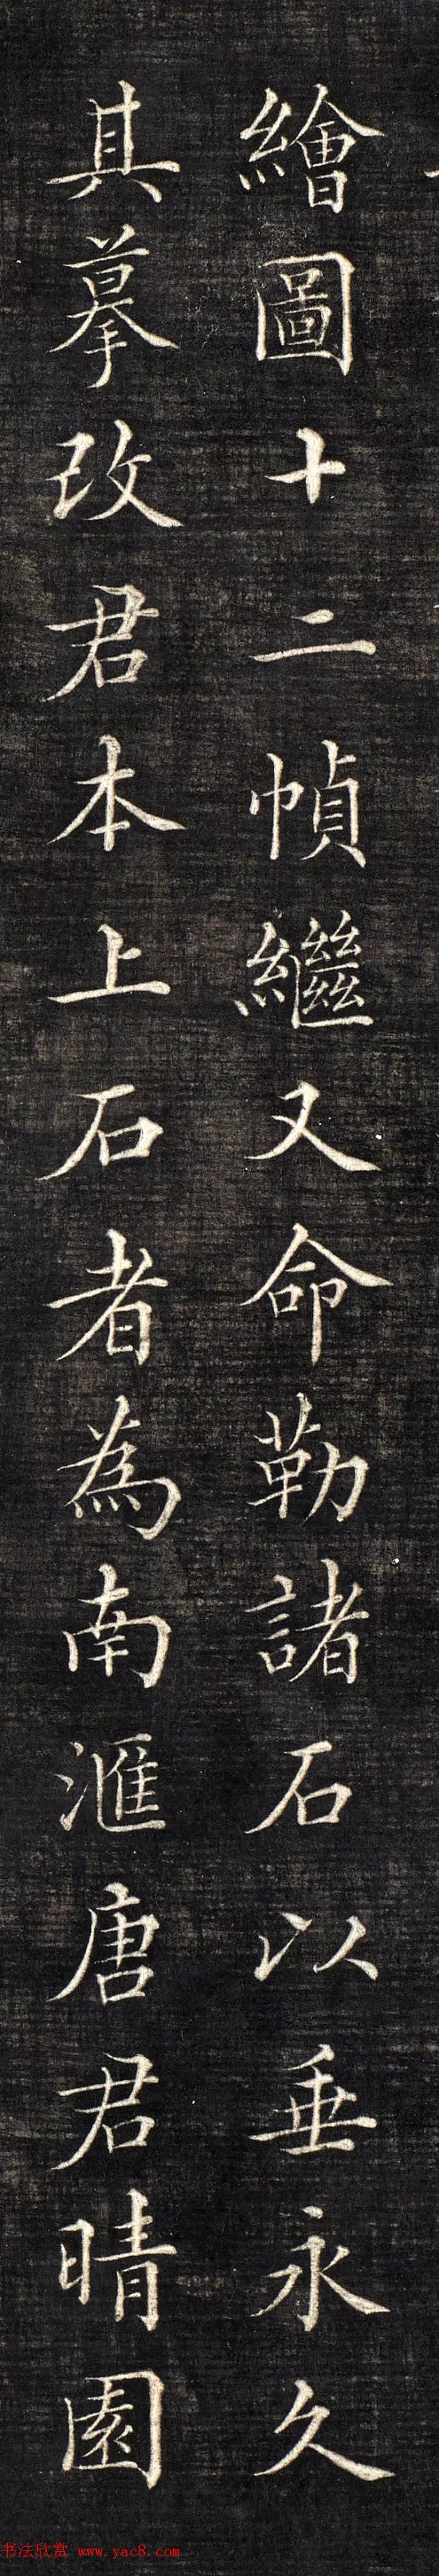 繪圖十二幀繼又命勒諸石以垂永久
其摹改君本上石者為南滙唐君晴園
书法欣赏 www.yac8.com